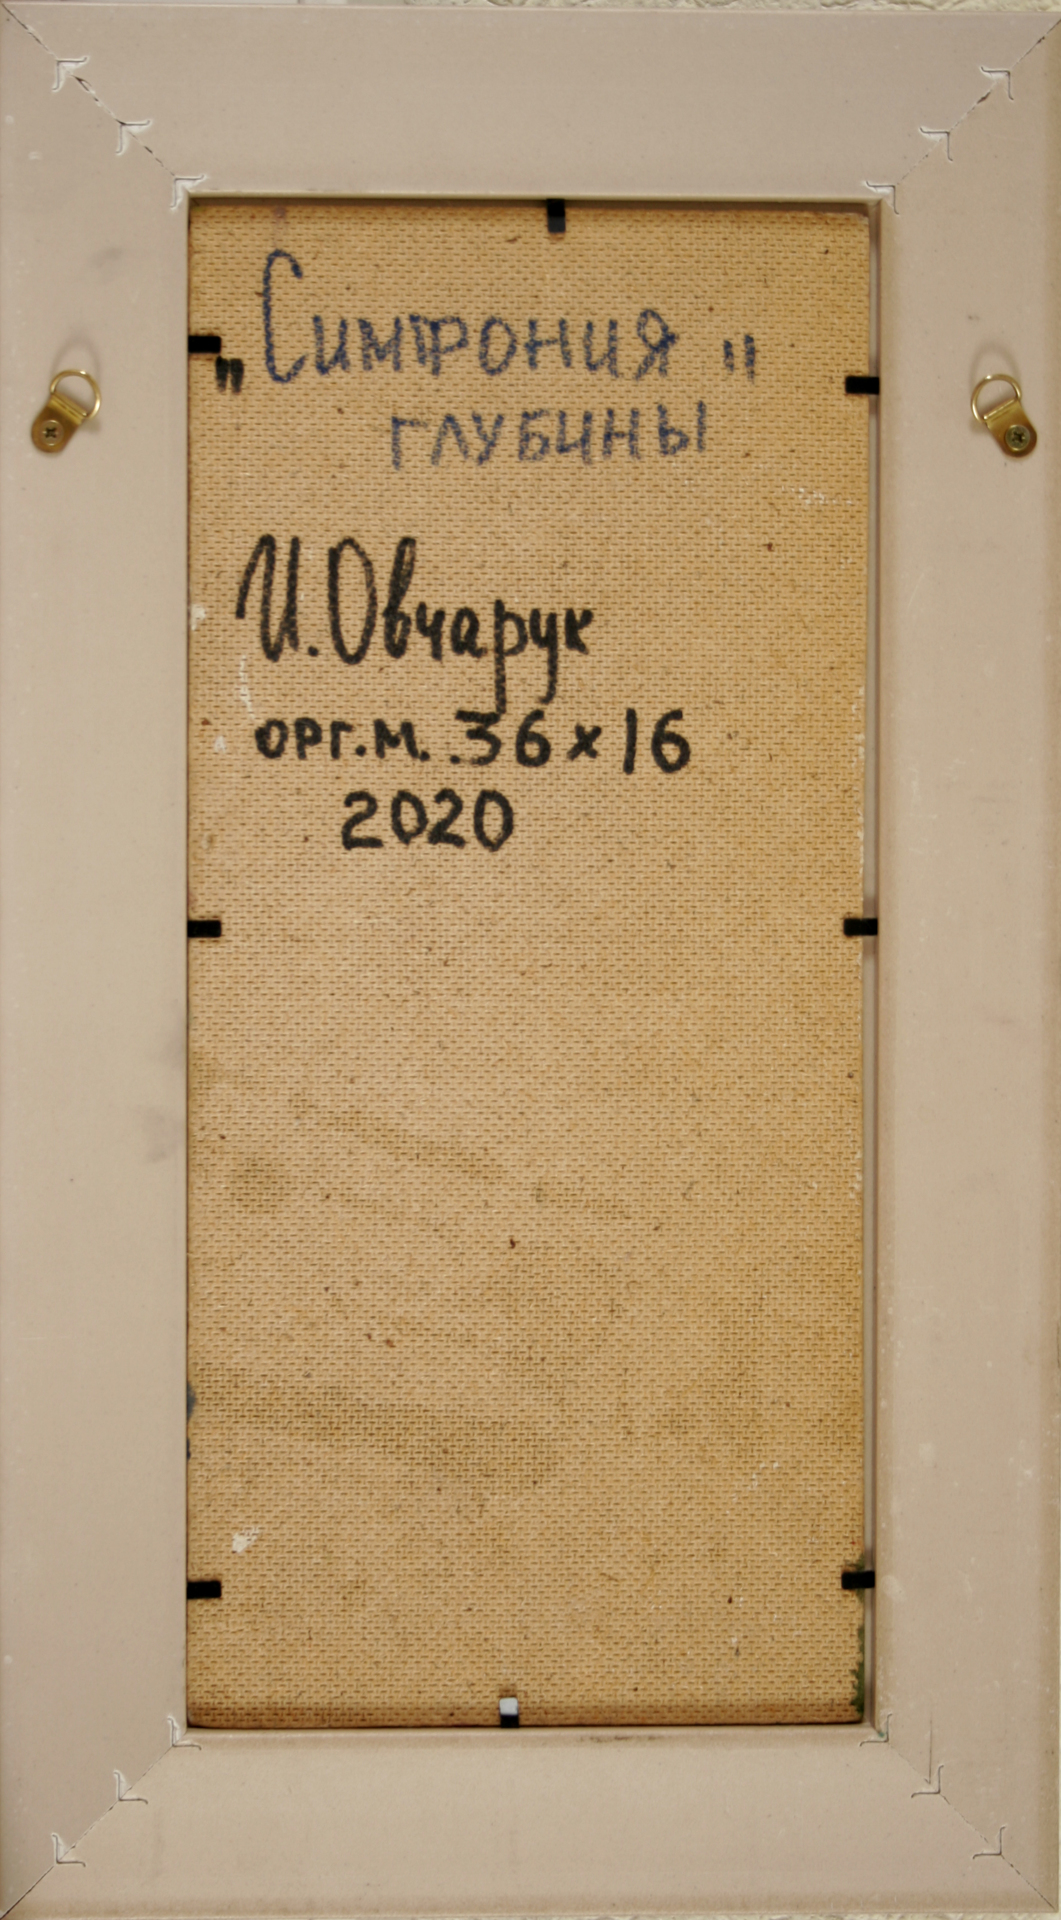 "Симфония"
глубины
И. Овчарук
орг.м. 36х16
2020